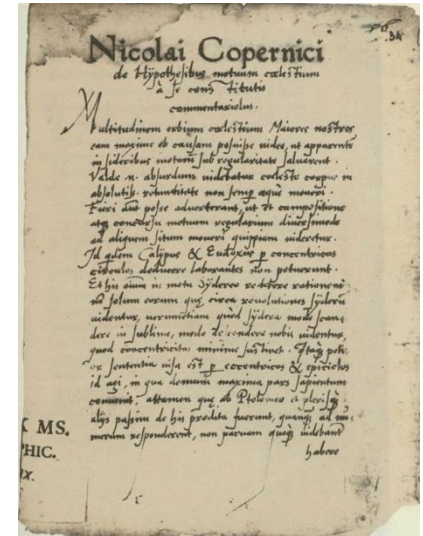 34
Nicolai Copernici
de Hypothesibus motuum cœlestium
à se constitutis
commentariolus.
Multitudinem orbium cœlestium Maiores nostros
eam maxime ob causam posuisse uideo, ut apparentem
in sideribus motum sub regularitate saluarent.
Valde n. absurdum uidebatur cœleste corpus in
absolutiss. rotunditate non semp æque moueri.
Fieri aut posse aduerterant, ut et compositione
atq concursu motuum regularium diuersimode
ad aliquem situm moueri quippiam uideretur.
Id quidem Calippus & Eudoxus p concentricos
circulos deducere laborantes non potuerunt.
Et his oium n: motu Sydereo reddere rationem
no solum eorum quæ circa reuolutiones syderũ
uidentur, uerumetiam quod sydera modo scan
dere in sublime, modo descendere nobis uidentur,
quod concentricitas minime sustinet. Itaq poti
or sententia uisa est p eccentricos & epiciclos
id agi, in qua demum maxima pars sapientum
conuenit, attamen quæ ab Ptolemeo et plerisq
alijs passim de his prodita fuerunt, quanq ad nu
merum responderent, non paruam quoq uidebant
habere
X MS.
PHIC.
X.